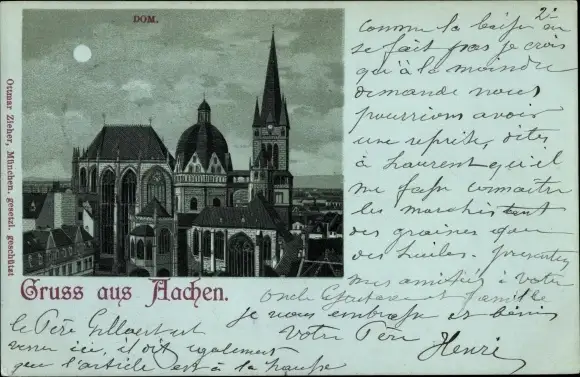 DOM.
2
Ottmar Zieher, München. gesetzl. geschützt
comme la baisse
se fait pas je crois
qu'à la moindre
demande nous
pourrions avoir
une reprise, dites
à Laurent qu'il
me fasse connaître
les marchés
des graines que
des huiles. présentez
mes amitiés à votre
oncle et famille
je vous embrasse et bénis
Votre Père
Henri
Gruss aus Aachen.
le Père
venu ici, il dit également
que l'article est à la hausse